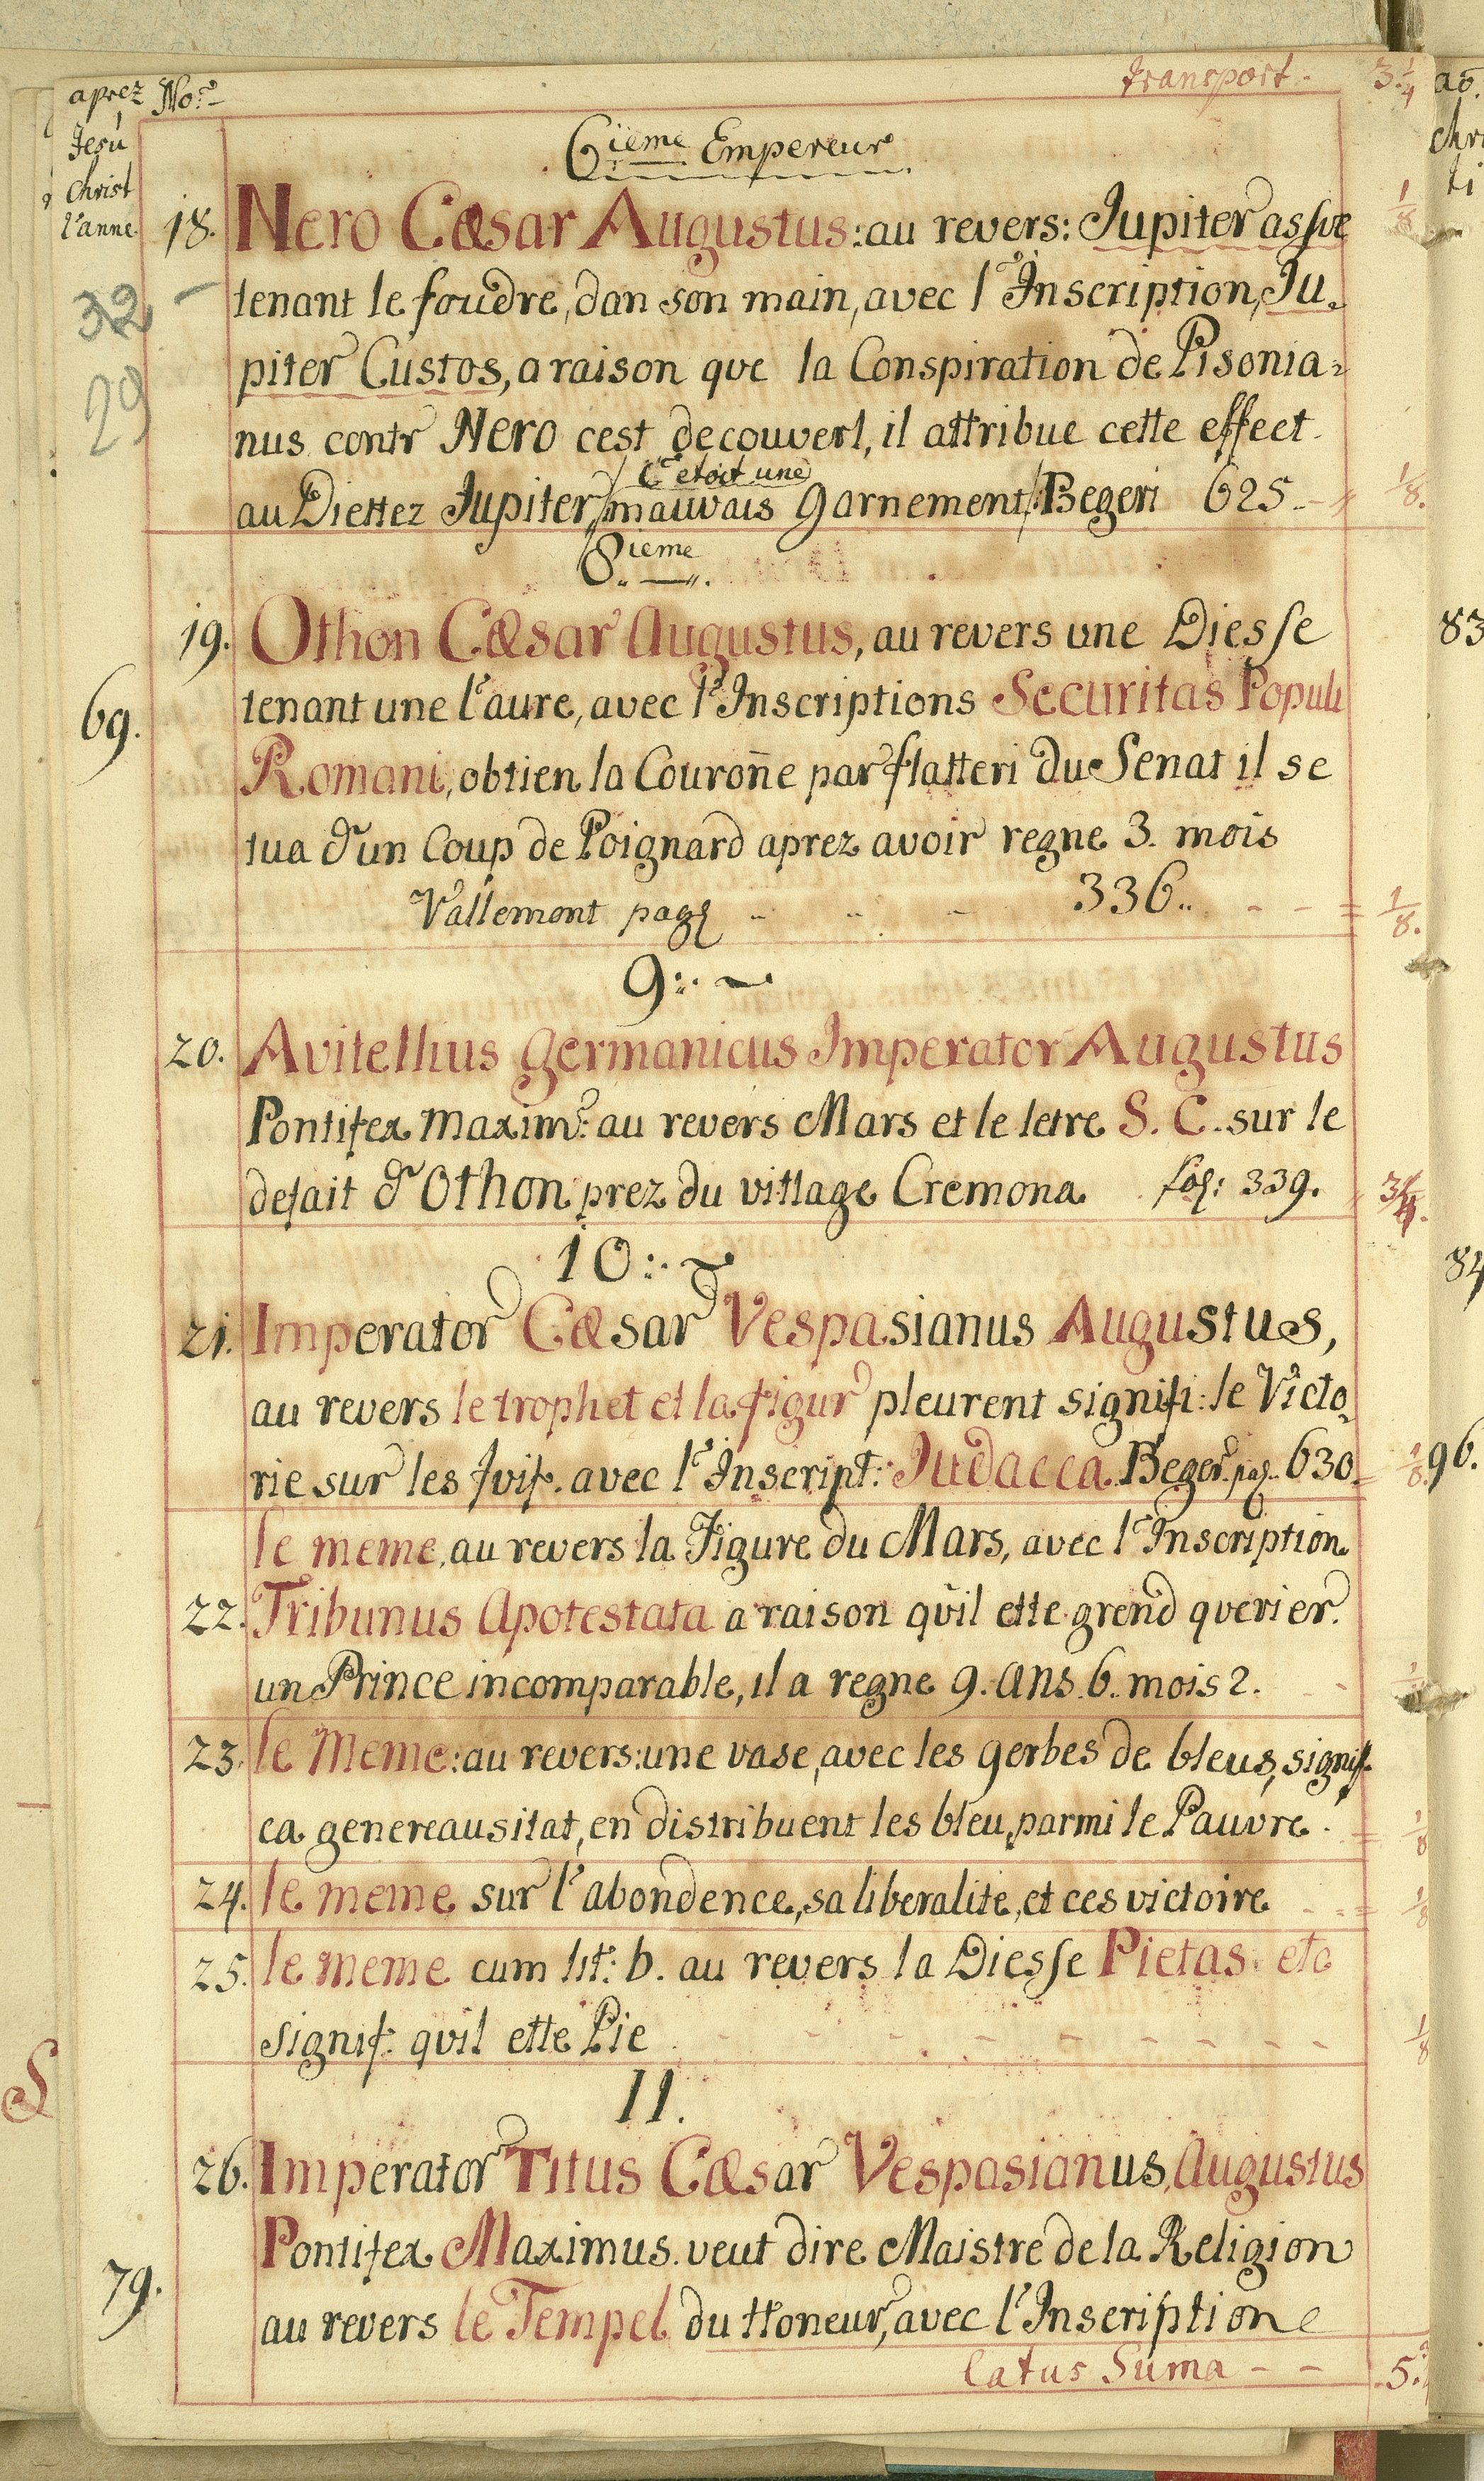 transport. 3 1/4
aprez No:
Jesu
Christ
l'anne
6ieme Empereur
18. Nero Cæsar Augustus: au revers: Jupiter assve 1/8
32
tenant le foudre, dan son main, avec l'Inscription, Ju=
29
piter Custos, a raison que la Conspiration de Pisonia=
nus contr Nero cest decouvert, il attribue cette effeet
C'etoit une
au Diettez Jupiter / mauvais garnement / Begeri 625. 1/8.
8ieme
19. Othon Cæsar Augustus, au revers une Diesse
69. tenant une l'aure, avec l'Inscriptions Securitas Populi
Romani, obtien la Couroñe par flatteri du Senat il se
tua d'un Coup de Poignard aprez avoir regne 3. mois
Vallemont pag 336.. 1/8.
9:.
20. Avitellius Germanicus Imperator Augustus
Pontifex maxim: au revers Mars et le letre S. C. sur le
defait d'Othon prez du village Cremona fol: 339.
10:.
21. Imperator Cæsar Vespasianus Augustus,
au revers le trophet et la figur pleurent signifi: le Victo=
rie sur les Jvif. avec l'Inscript: Judaeea. Beger. pag. 630 1/8.
le meme, au revers la Figure du Mars, avec l'Inscription
22. Tribunus Apotestata a raison qu'il ette grend qverier.
un Prince incomparable, il a regne 9. ans. 6. mois 2.
23. le Meme: au revers: une vase, avec les gerbes de bleus, signif.
ca genereausitat, en distribuent les bleu, parmi le Pauvre. 1/8
24. le meme sur l'abondence, sa liberalite, et ces victoire 1/8
25. le meme cum lit: b. au revers la Diesse Pietas etc
signif: qvil ette Pie 1/8
11.
26. Imperator Titus Cæsar Vespasianus, Augustus
Pontifex Maximus. veut dire Maistre de la Religion
79. au revers le Tempel du Honeur, avec l'Inscriptione
latus Suma - - 5.
83
84
96.